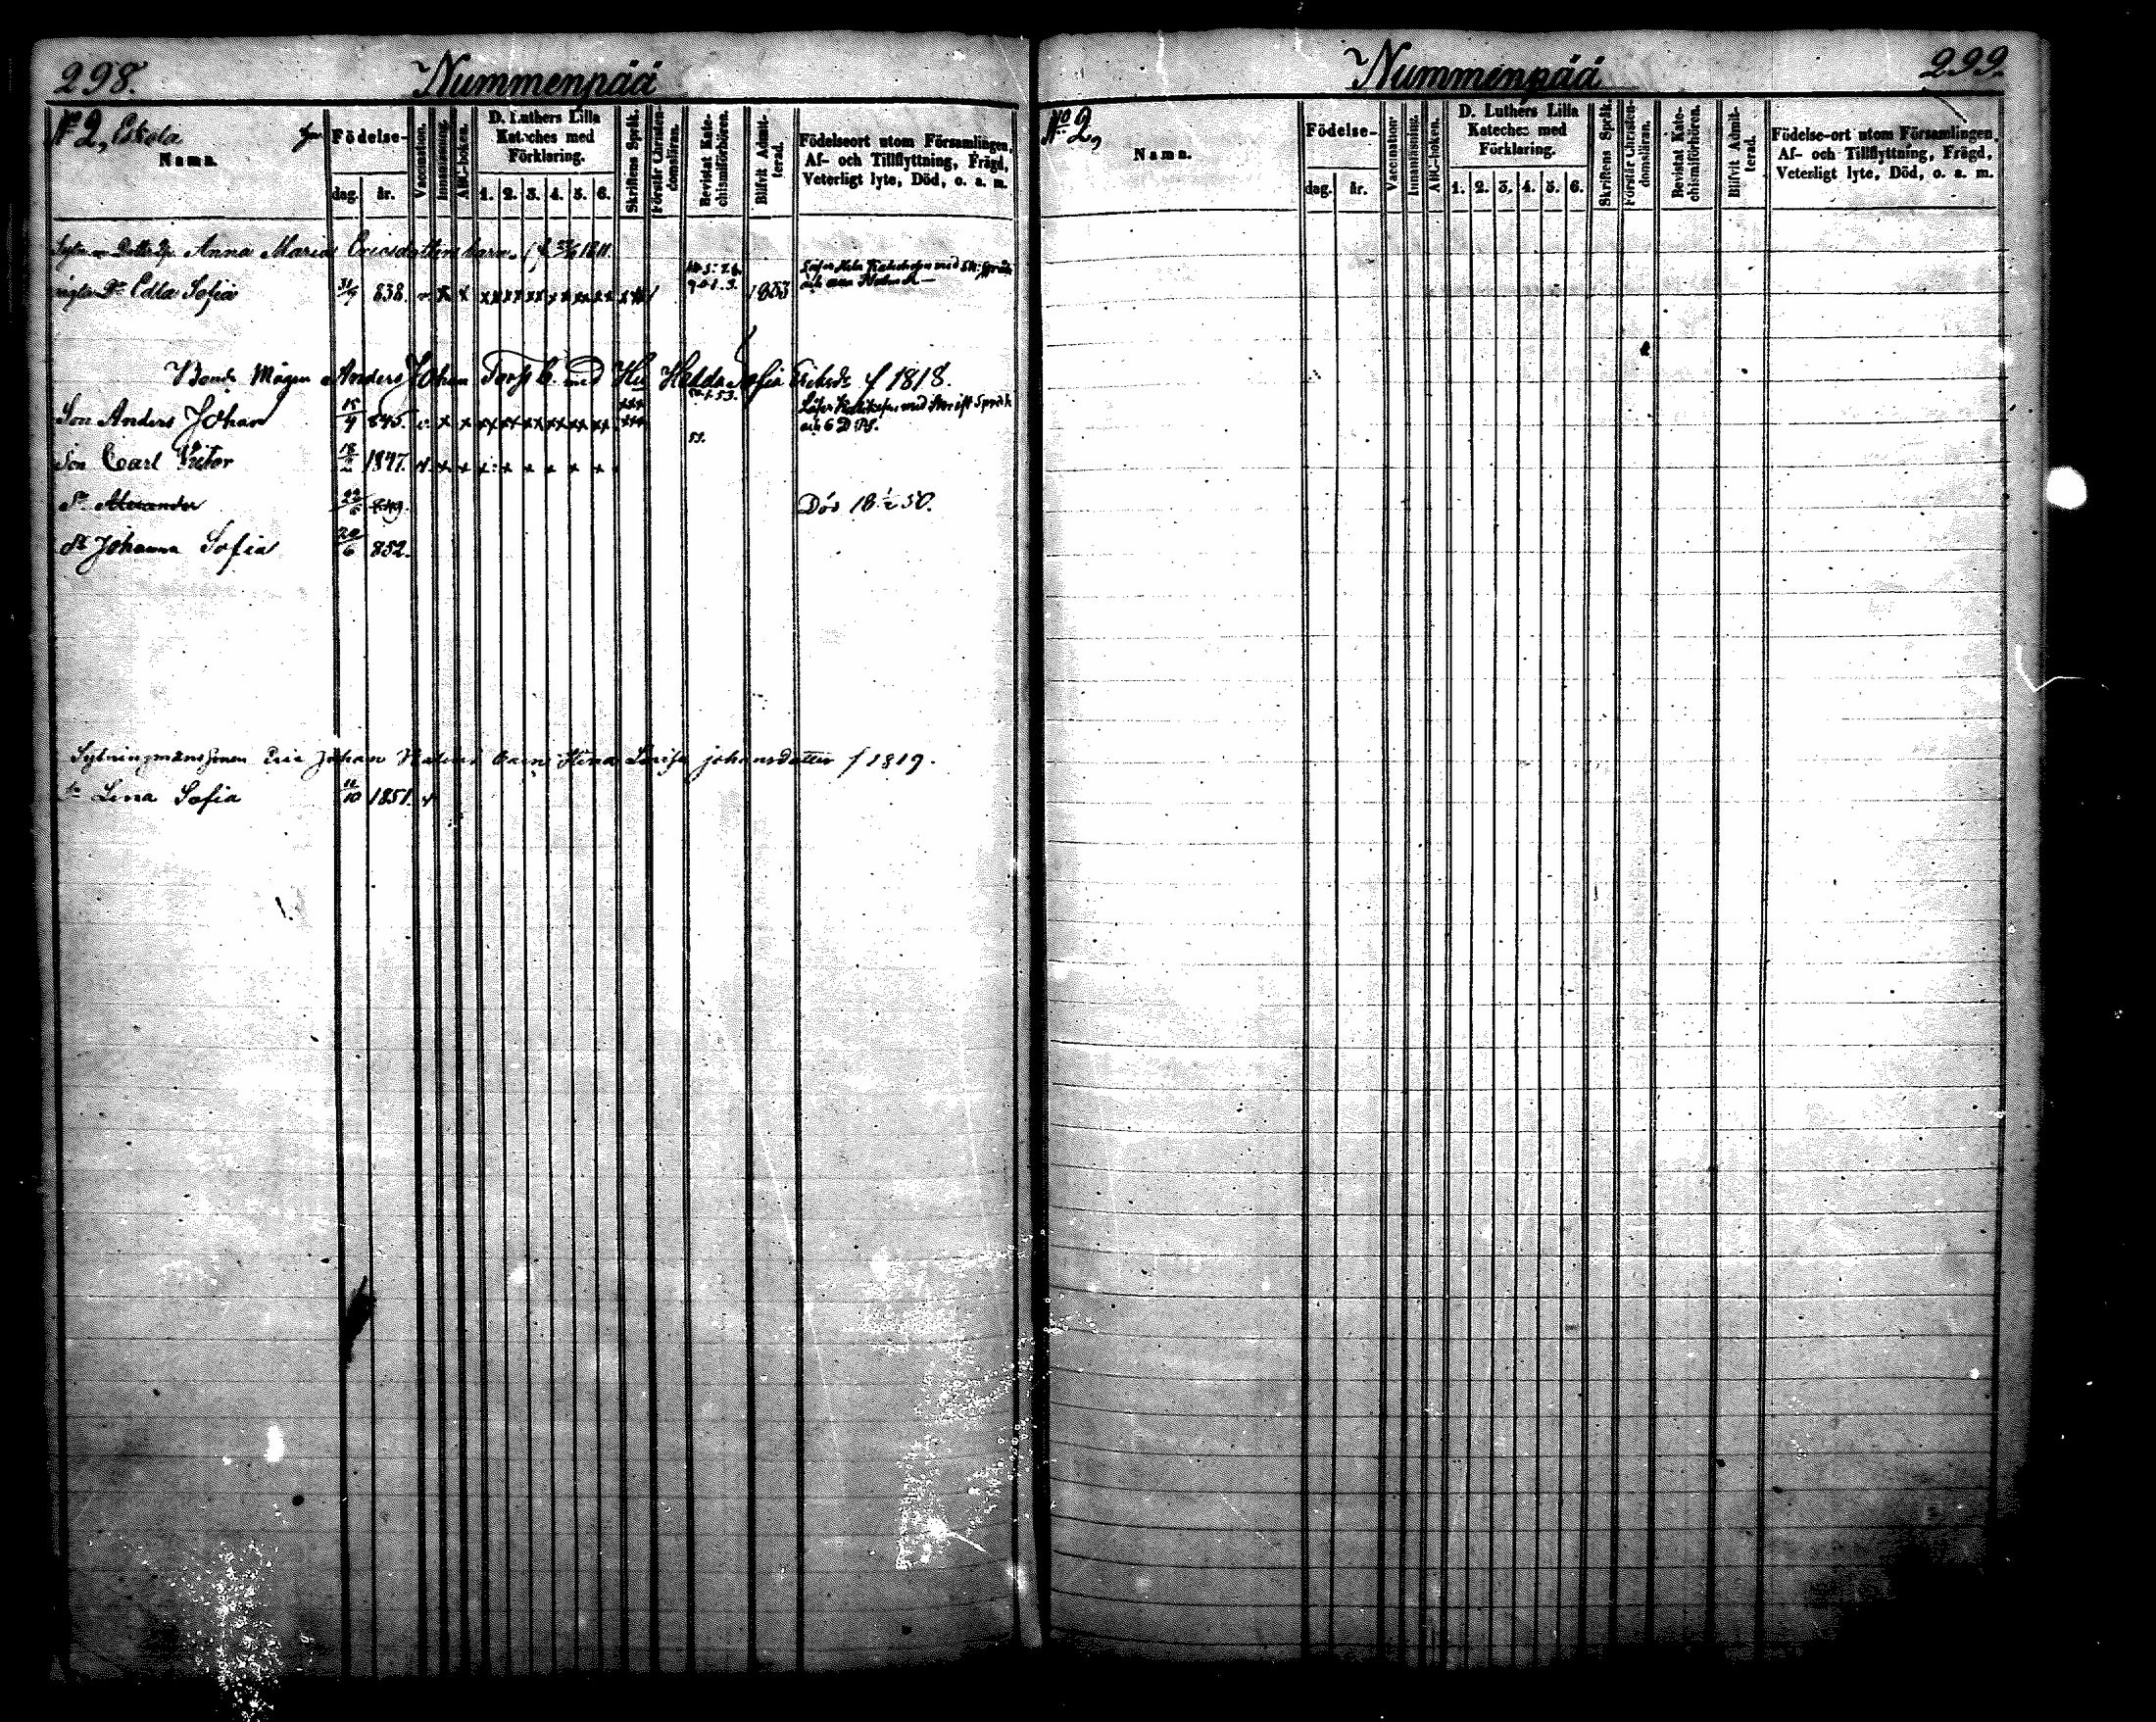 298. Nummenpää
No 2, Eskola
Nama.
Födelse-
dag. år.
Vaccination.
Innanläsning.
ABC-boken.
D. Luthers Lilla
Kateches med
Förklaring.
1. 2. 3. 4. 5. 6.
Skriftens Språk.
Förstår Christen-
domsläran.
Bevistat Kate-
chismiförhören.
Blifvit Admit-
terad.
Födelseort utom Församlingen,
Af- och Tillflyttning, Frägd,
Veterligt lyte, Död, o. s. m.
Anna Maria Ericsdotters barn. f 1811.
Dr Edla Sofia 31/ 838. v x x 1853
Bonde Mågen Anders Johan Torp b. med Hu Hedda Sofia Ericsd f 1818.
Son Anders Johan 15/9 845. v. x x Läser med Skrift Språk
och 6 D Ps.
Son Carl Victor 18/ 1847. v. x x x x x x x x
Sn Alexander 22/ 849. Död 18 50.
Dr Johanna Sofia 20/6 852.
Sytningmans sonen Eric Johan barn Lovisa johansdotter f 1819.
Dr Lena Sofia 11/10 1851. v
Nummenpää 299.
No 2,
Nama.
Födelse-
dag. år.
Vaccination.
Innanläsning.
ABC-boken.
D. Luthers Lilla
Kateches med
Förklaring.
1. 2. 3. 4. 5. 6.
Skriftens Språk.
Förstår Christen-
domsläran.
Bevistat Kate-
chismiförhören.
Blifvit Admit-
terad.
Födelse-ort utom Församlingen,
Af- och Tillflyttning, Frägd,
Veterligt lyte, Död, o. s. m.